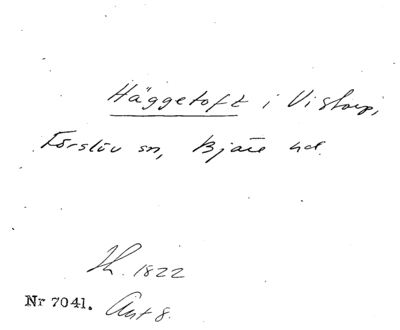 Häggetoft i Vistorp,
Förslöv sn, Bjäre hd.
Sk. 1822
Nr 7041. Ant 8.